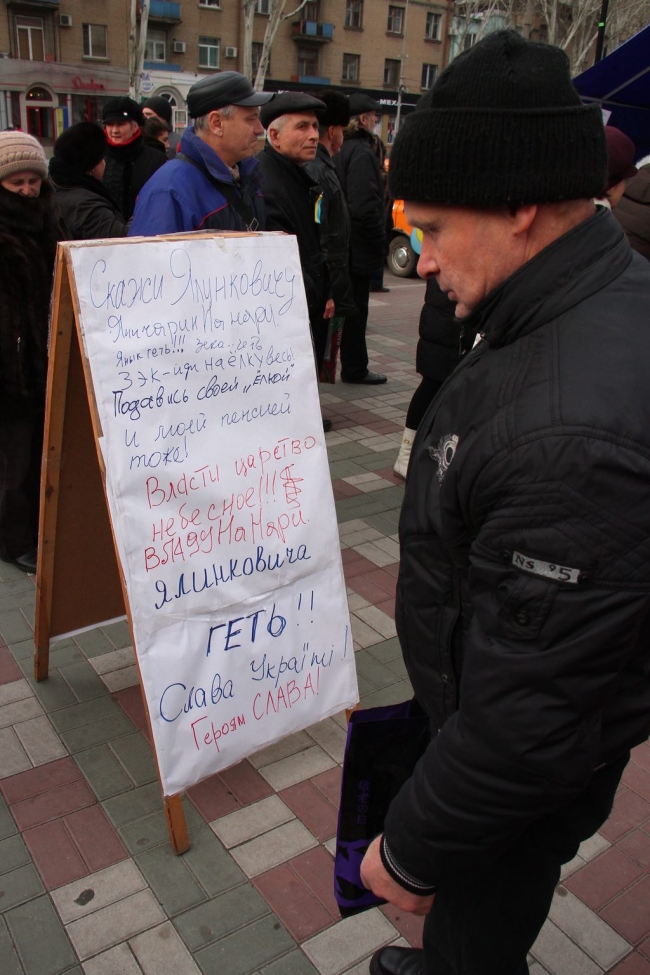 МЕХА
Скажи Ялунковичу
Янык геть!!! Зека-геть
Зэк-иди на ёлку весь!
Подавись своей „ёлкой"
и моей пенсией
тоже!
Власти царство
небесное!!!
Власду На Нари.
ЯЛИНКОВИЧА
ГЕТЬ!!
Слава Україні!
Героям СЛАВА!
NS 95